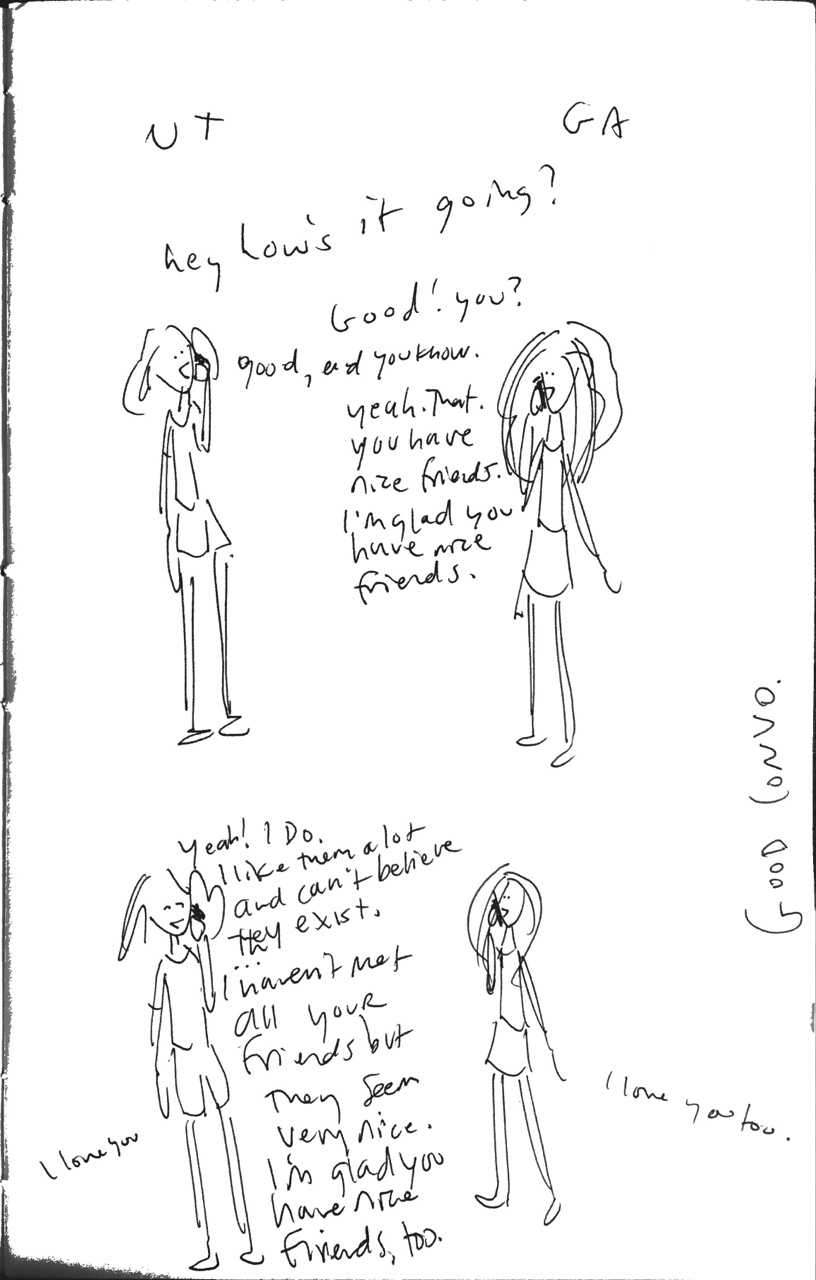 UT
GA
hey how's it going?
Good! you?
good, and you know.
yeah. That.
you have
nice friends.
I'm glad you
have nice
friends.
GOOD CONVO.
yeah! I DO.
I like them a lot
and can't believe
they exist.
...
I haven't met
all your
friends but
They seem
very nice.
I'm glad you
have nice
friends, too.
I love you
I love you too.